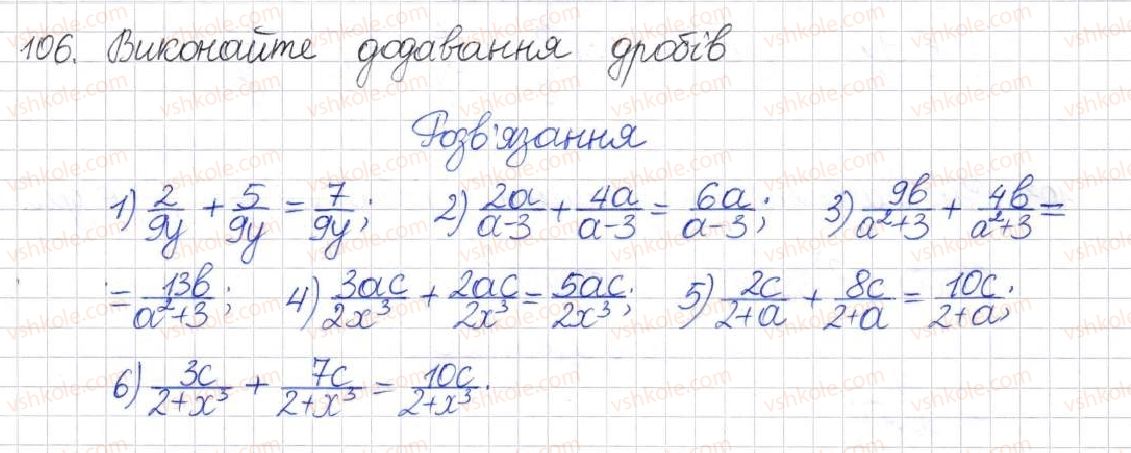 106. Виконайте додавання дробів
Розв'язання
1) 2/9y + 5/9y = 7/9y; 2) 2a/a-3 + 4a/a-3 = 6a/a-3; 3) 9b/a²+3 + 4b/a²+3 =
= 13b/a²+3; 4) 3ac/2x³ + 2ac/2x³ = 5ac/2x³; 5) 2c/2+a + 8c/2+a = 10c/2+a;
6) 3c/2+x³ + 7c/2+x³ = 10c/2+x³.
vshkole.com